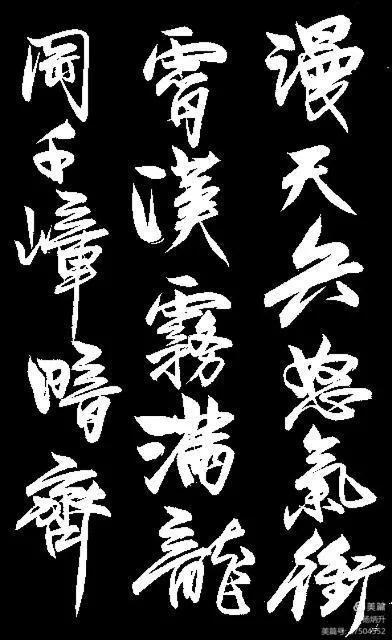 漫天兵怒氣衝
霄漢霧滿龍
岡千嶂暗齊
美篇
杨炳升
美篇号